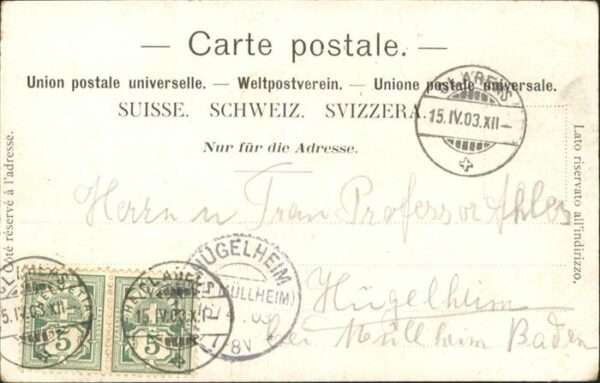 — Carte postale. —
Union postale universelle. — Weltpostverein. — Unione postale universale.
SUISSE. SCHWEIZ. SVIZZERA.
Nur für die Adresse.
Côté réservé à l'adresse.
Lato riservato all'indirizzo.
CLARENS
15.IV.03.XII—
Herrn u Frau Professor Ahles
Hügelheim
bei Müllheim Baden
HÜGELHEIM
(MÜLLHEIM)
8V
5.IV.03.XII—
15.IV.03.XII
HELVETIA
5
5